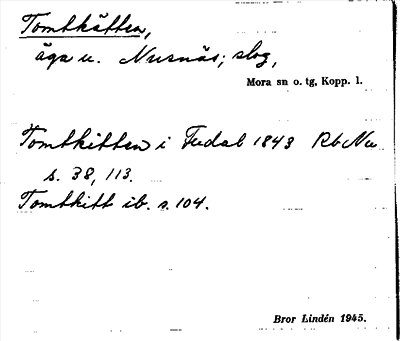 Tomtkätten,
äga u. Nusnäs; slog,
Mora sn o. tg, Kopp. l.
Tomtkitten i Fudal 1843 Rb Nu
s. 38, 113.
Tomtkitt ib. s. 104.
Bror Lindén 1945.